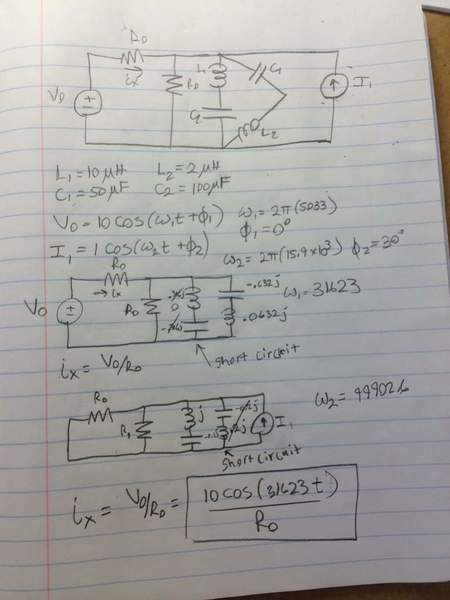 R0
V0
±
ix
R0
L1
C2
C1
L2
I1
L1 = 10 μH L2 = 2 μH
C1 = 50 μF C2 = 100 μF
V0 = 10 cos(ω1t + ϕ1) ω1 = 2π(5033)
ϕ1 = 0°
I1 = 1 cos(ω2t + ϕ2) ω2 = 2π(15.9×10³) ϕ2 = 30°
R0
V0
±
→ ix
R0
0
-.632j
.0632j
ω1 = 31623
short circuit
ix = V0/R0
R0
j
I1
ω2 = 99902.6
short circuit
ix = V0/R0 = 10 cos(31623t)
R0